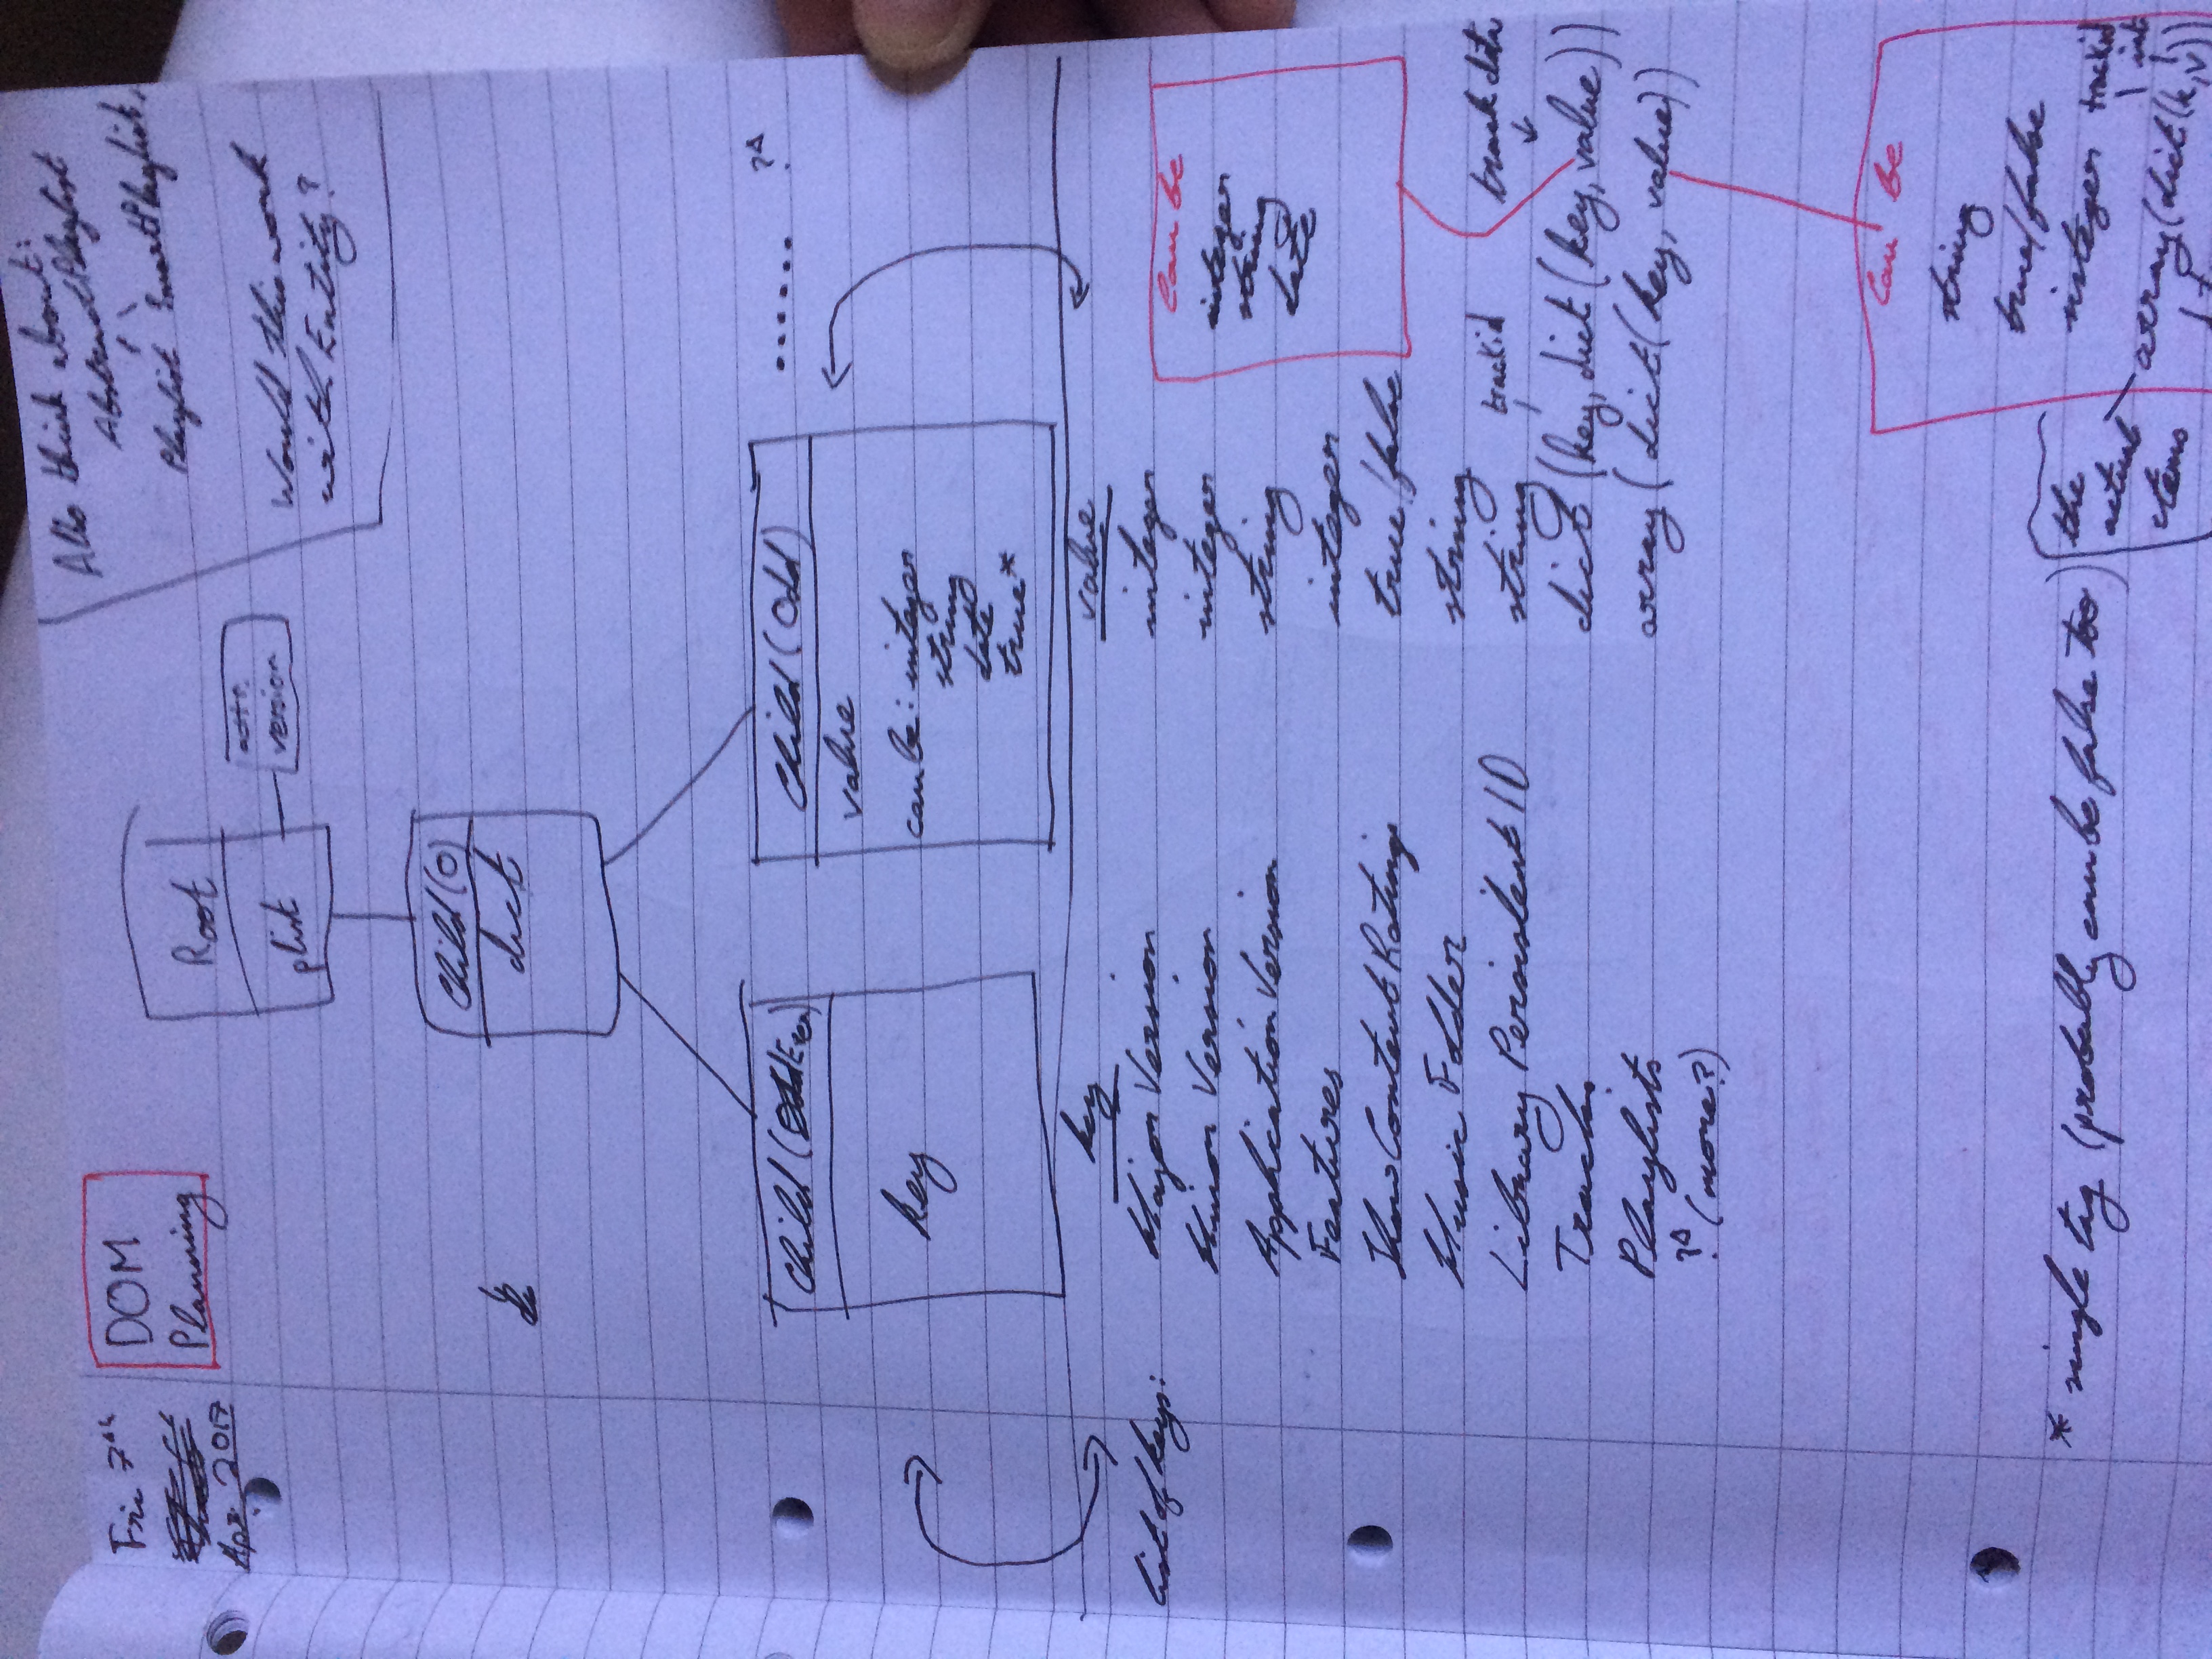 Fri 7th
Apr 2017
DOM
Planning
Also think about:
AbstractPlaylist
Playlist SmartPlaylist.
Would this work
with Entity?
Root
plist
attr.
version
Child(0)
dict
Child(Even)
key
Child(Odd)
value
can be: integer
string
date
true*
...... ?Δ
key value
list of keys:
Major Version integer
Minor Version integer
Application Version string
Features integer
Show Content Ratings true/false
Music Folder string
Library Persistent ID string
Tracks dict(key, dict(key, value))
Playlists array(dict(key, value))
?Δ (more?)
can be
integer
string
date
trackid
track data
can be
string
true/false
integer
trackid
int
array(dict(k,v))
the
actual
items
* single tag (probably can be false too)